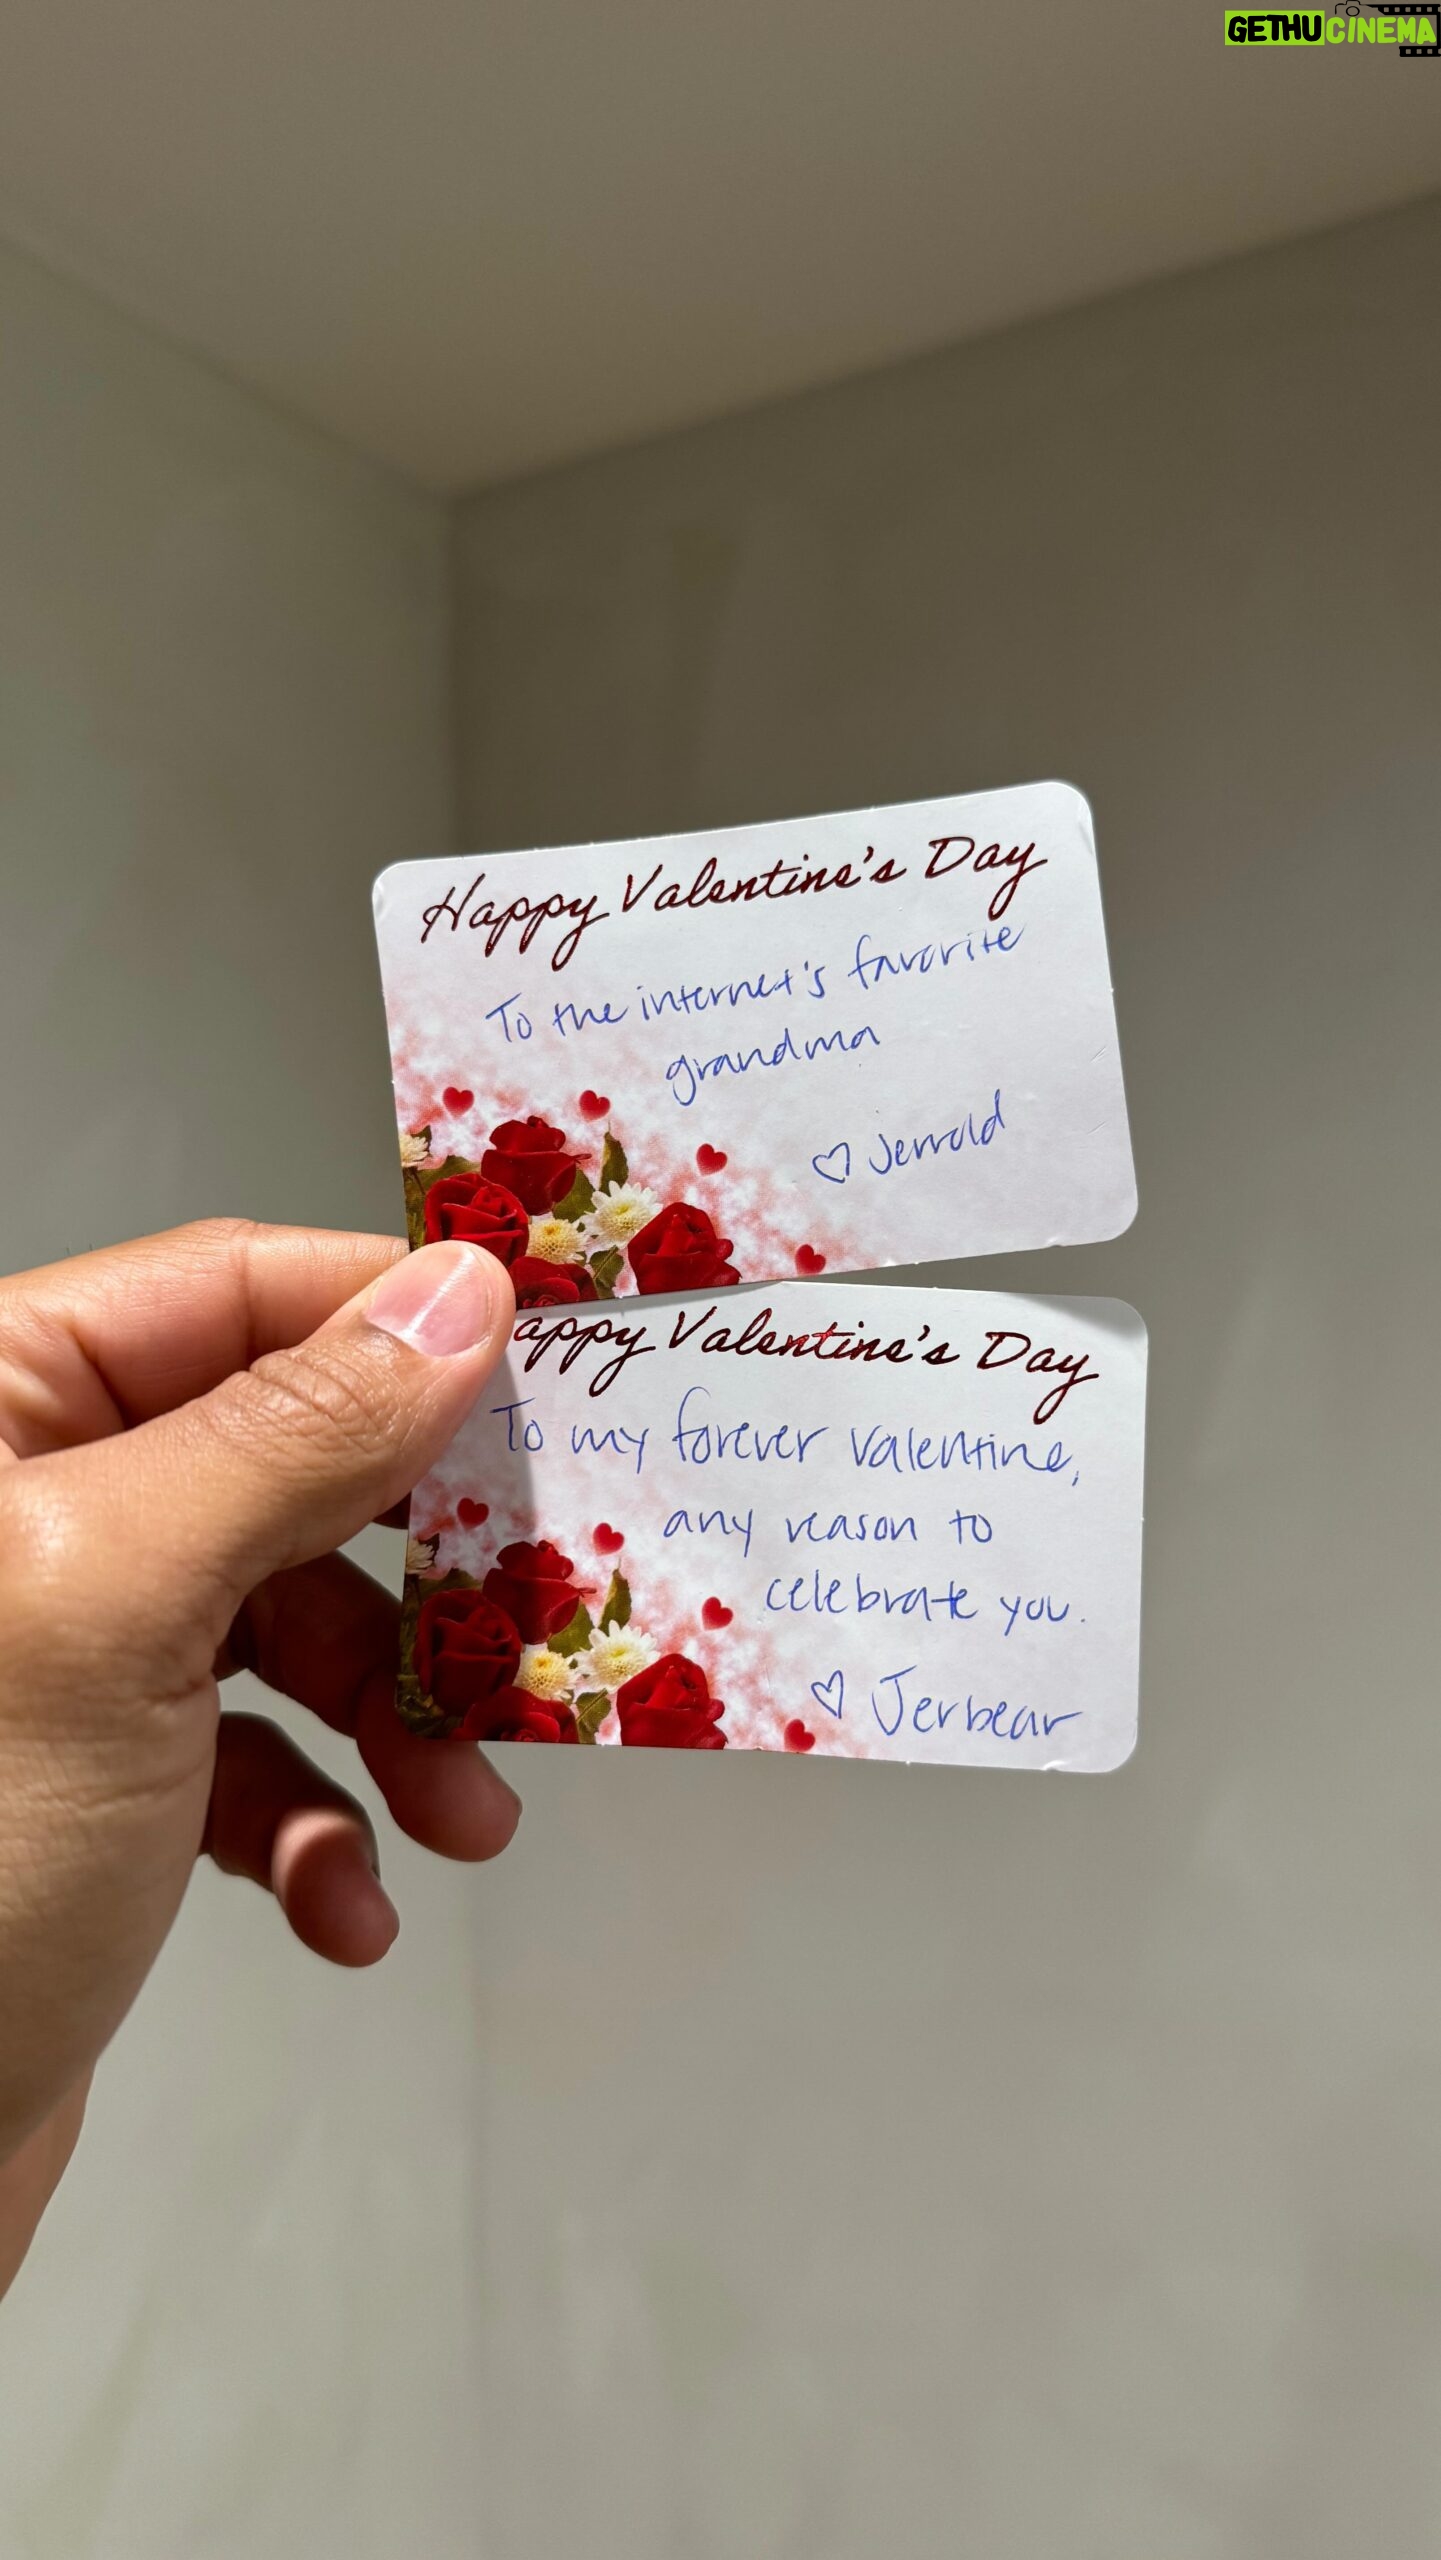 GETHUCINEMA
Happy Valentine's Day
To the internet's favorite
grandma
♡ Jerrold
appy Valentine's Day
To my forever valentine,
any reason to
celebrate you.
♡ Jerbear